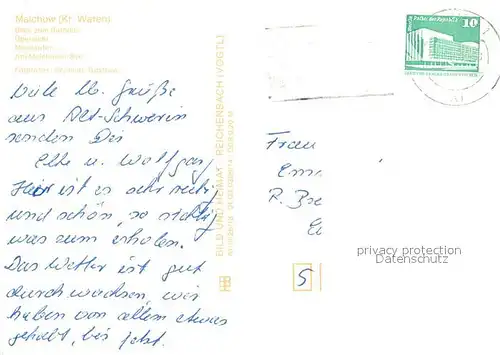 Malchow (Kr. Waren)
Blick zum Rathaus
Übersicht
Viele lb. Grüße
aus Alt-Schwerin
senden Dir
Elke u. Wolfgang
Hier ist es sehr ruhig
und schön, so richtig
was zum erholen.
Das Wetter ist gut
durchwachsen, wir
haben von allem etwas
gehabt, bis jetzt.
BILD UND HEIMAT REICHENBACH (VOGTL)
Palast der Republik
10
Frau
R. Bre
5
privacy protection
Datenschutz